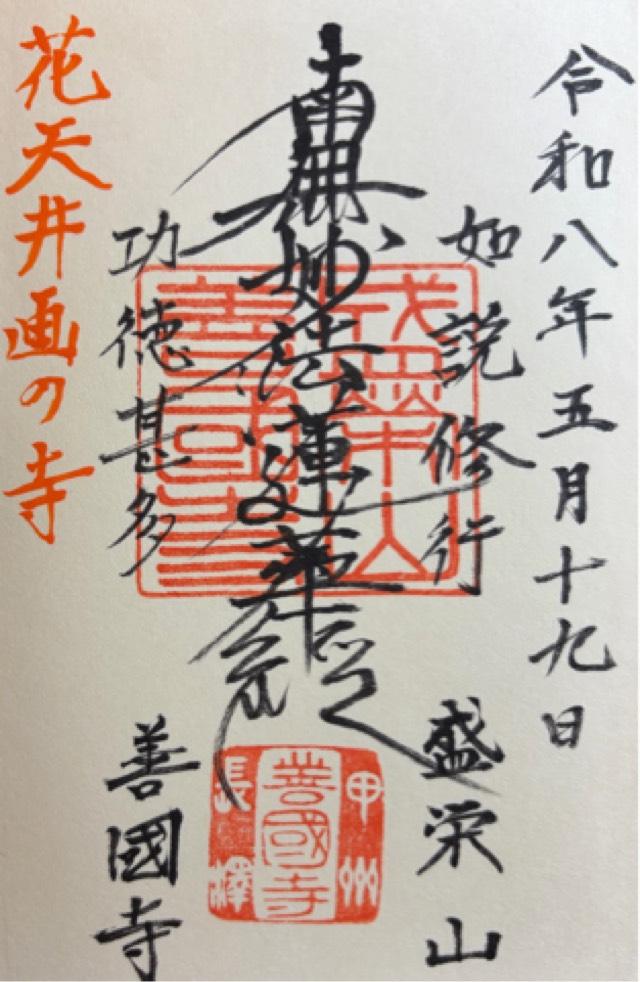 令和八年五月十九日
如説修行
南無妙法蓮華経
功徳甚多
花天井画の寺
盛栄山
善國寺
盛栄山
善國寺
甲州
善國寺
長澤